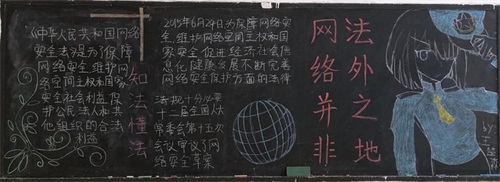 《中华人民共和国网络
安全法》是为了保障
网络安全 维护网
络空间主权和国家
安全 社会利益 保
护公民 法人和其
他组织的合法
利益
知法懂法
2015年6月29日,为保障网络安
全 维护网络空间主权和国
家安全 促进经济社会信
息化健康发展 不断完善
网络安全保护方面的法律
法规十分必要
十二届全国人大
常委会第十五次
会议审议了网
络安全草案
网络并非
法外之地